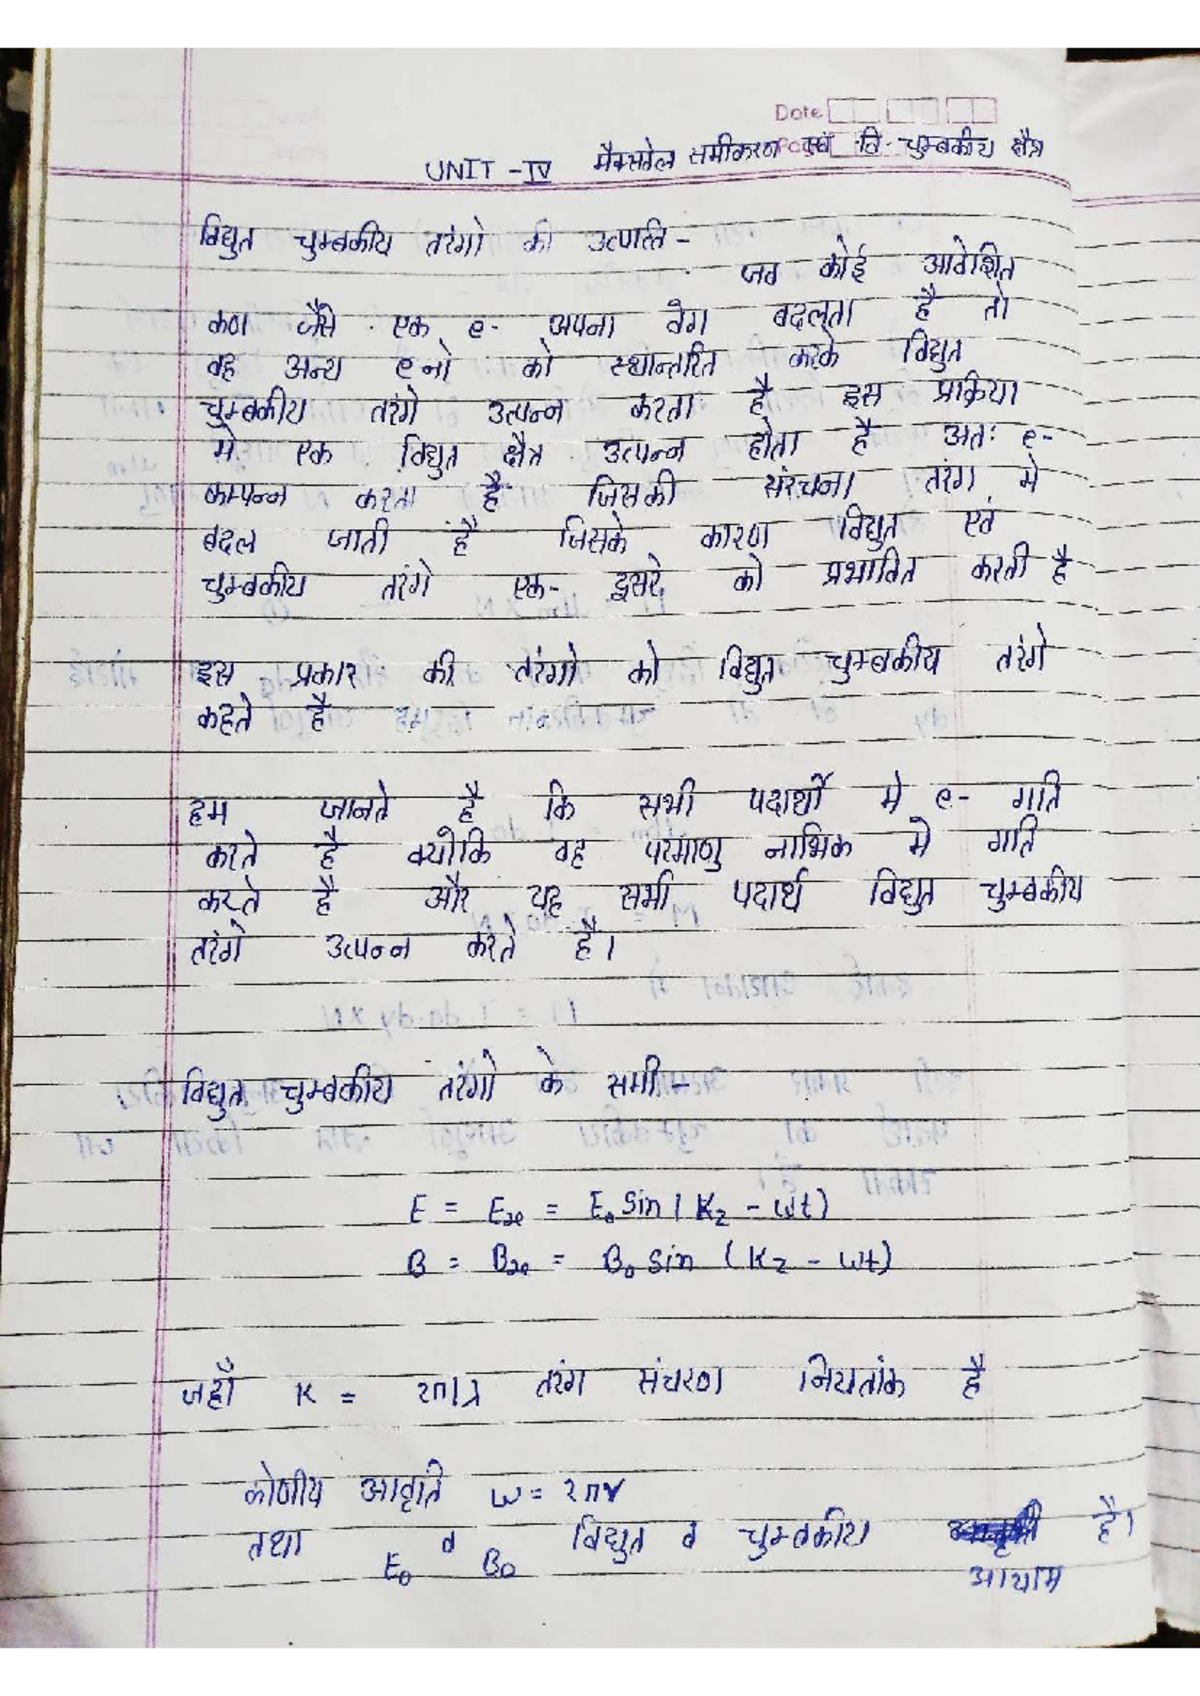 Date
UNIT - IV मैक्सवेल समीकरण एवं वि. चुम्बकीय क्षेत्र
विद्युत चुम्बकीय तरंगो की उत्पत्ति -
जब कोई आवेशित
कण जैसे एक e- अपना वेग बदलता है तो
वह अन्य eनो को स्थान्तरित करके विद्युत
चुम्बकीय तरंगे उत्पन्न करता है इस प्रक्रिया
मे एक विद्युत क्षेत्र उत्पन्न होता है अतः e-
कम्पन्न करता है जिसकी संरचना तरंग मे
बदल जाती है जिसके कारण विद्युत एवं
चुम्बकीय तरंगे एक- दूसरे को प्रभावित करती है
इस प्रकार की तरंगो को विद्युत चुम्बकीय तरंगे
कहते है
हम जानते है कि सभी पदार्थो मे e- गति
करते है क्योकि वह परमाणु नाभिक मे गति
करते है और यह सभी पदार्थ विद्युत चुम्बकीय
तरंगे उत्पन्न करते है।
विद्युत चुम्बकीय तरंगो के समी-
E = Ex = E₀ Sin (Kz - ωt)
B = Bx = B₀ sin (Kz - ωt)
जहाँ K = 2π/λ तरंग संचरण नियतांक है
कोणीय आवृति ω = 2πν
तथा E₀ व B₀ विद्युत व चुम्बकीय है।
आयाम